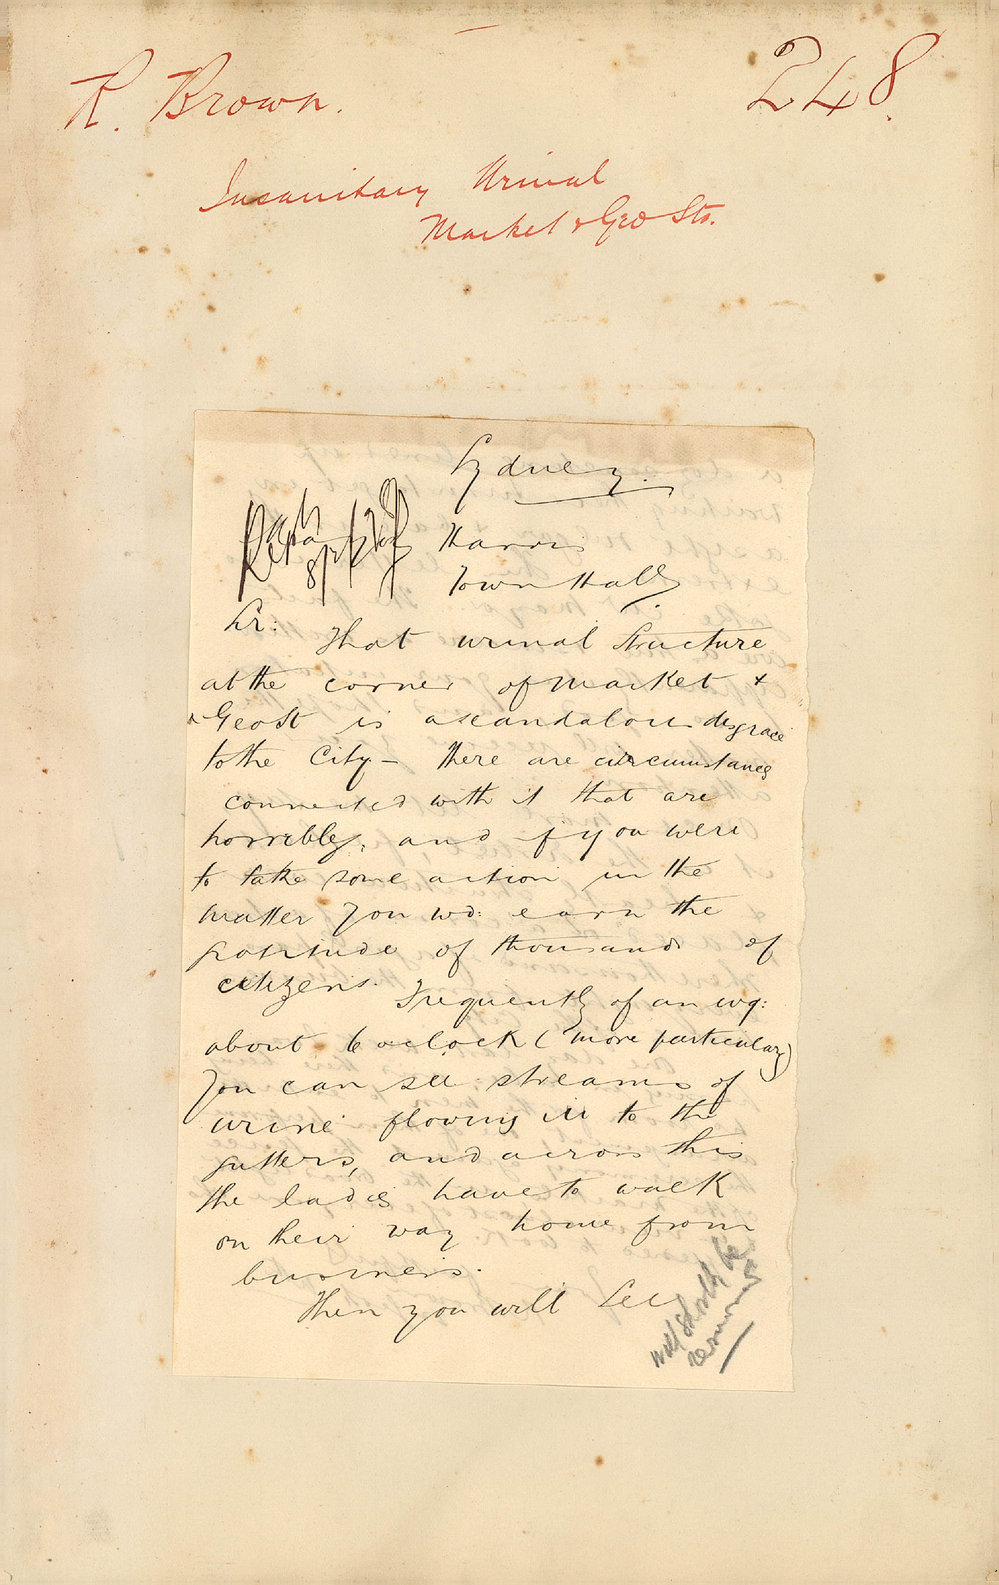 R. Brown.
248.
Insanitary Urinal
Market & Geo Sts.
Sydney.
Harris
Town Hall.
Sr: That urinal structure
at the corner of Market &
Geo St is a scandalous disgrace
to the City – There are circumstances
connected with it that are
horrible, and if you were
to take some action in the
matter you wd: earn the
gratitude of thousands of
citizens. Frequently of an evg:
about 6 o'clock (more particulary)
you can see streams of
urine flowing in to the
gutters, and across this
the ladies have to walk
on their way home from
business.
Then you will see
should be